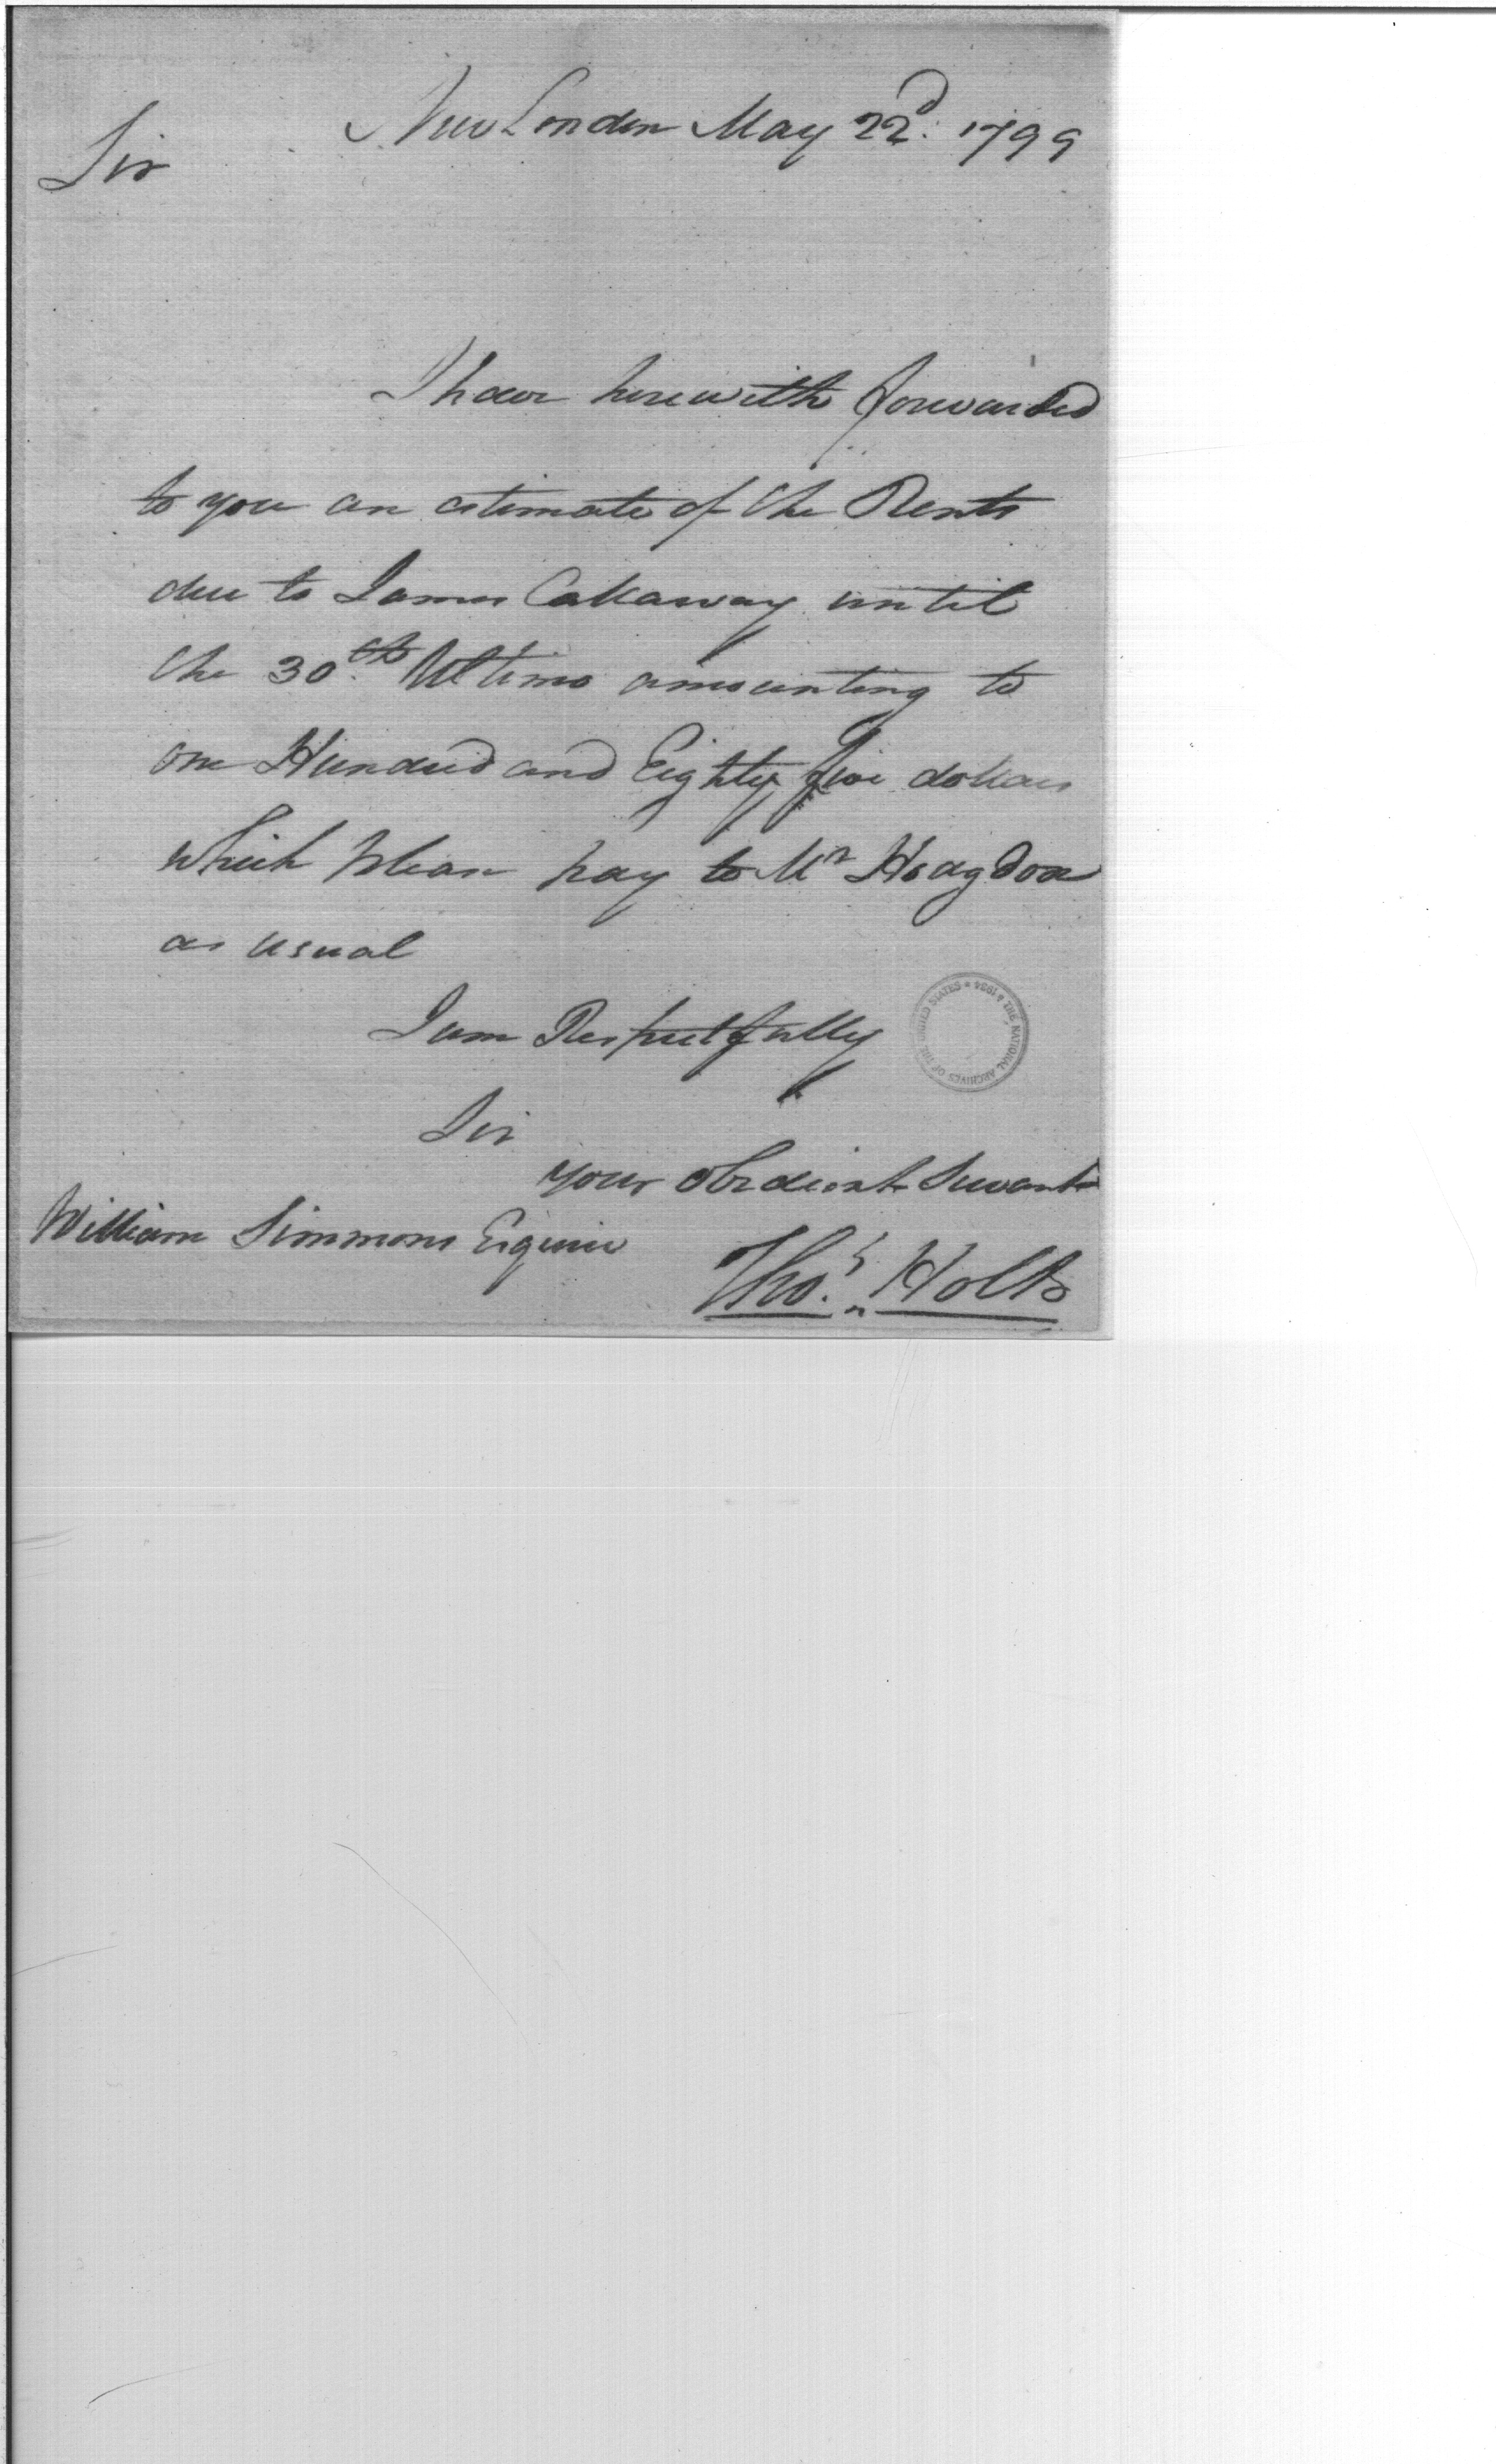 New London May 22d. 1799
Sir
I have herewith forwarded
to you an estimate of the Rents
due to James Callaway until
the 30th. Ultimo amounting to
one Hundred and Eighty five dollars
which please pay to Mr Hoagdon
as usual
I am Respectfully
THE NATIONAL ARCHIVES OF THE UNITED STATES * 1934 *
Sir
your obedient Servant
William Simmons Esquire
Thos. Holt